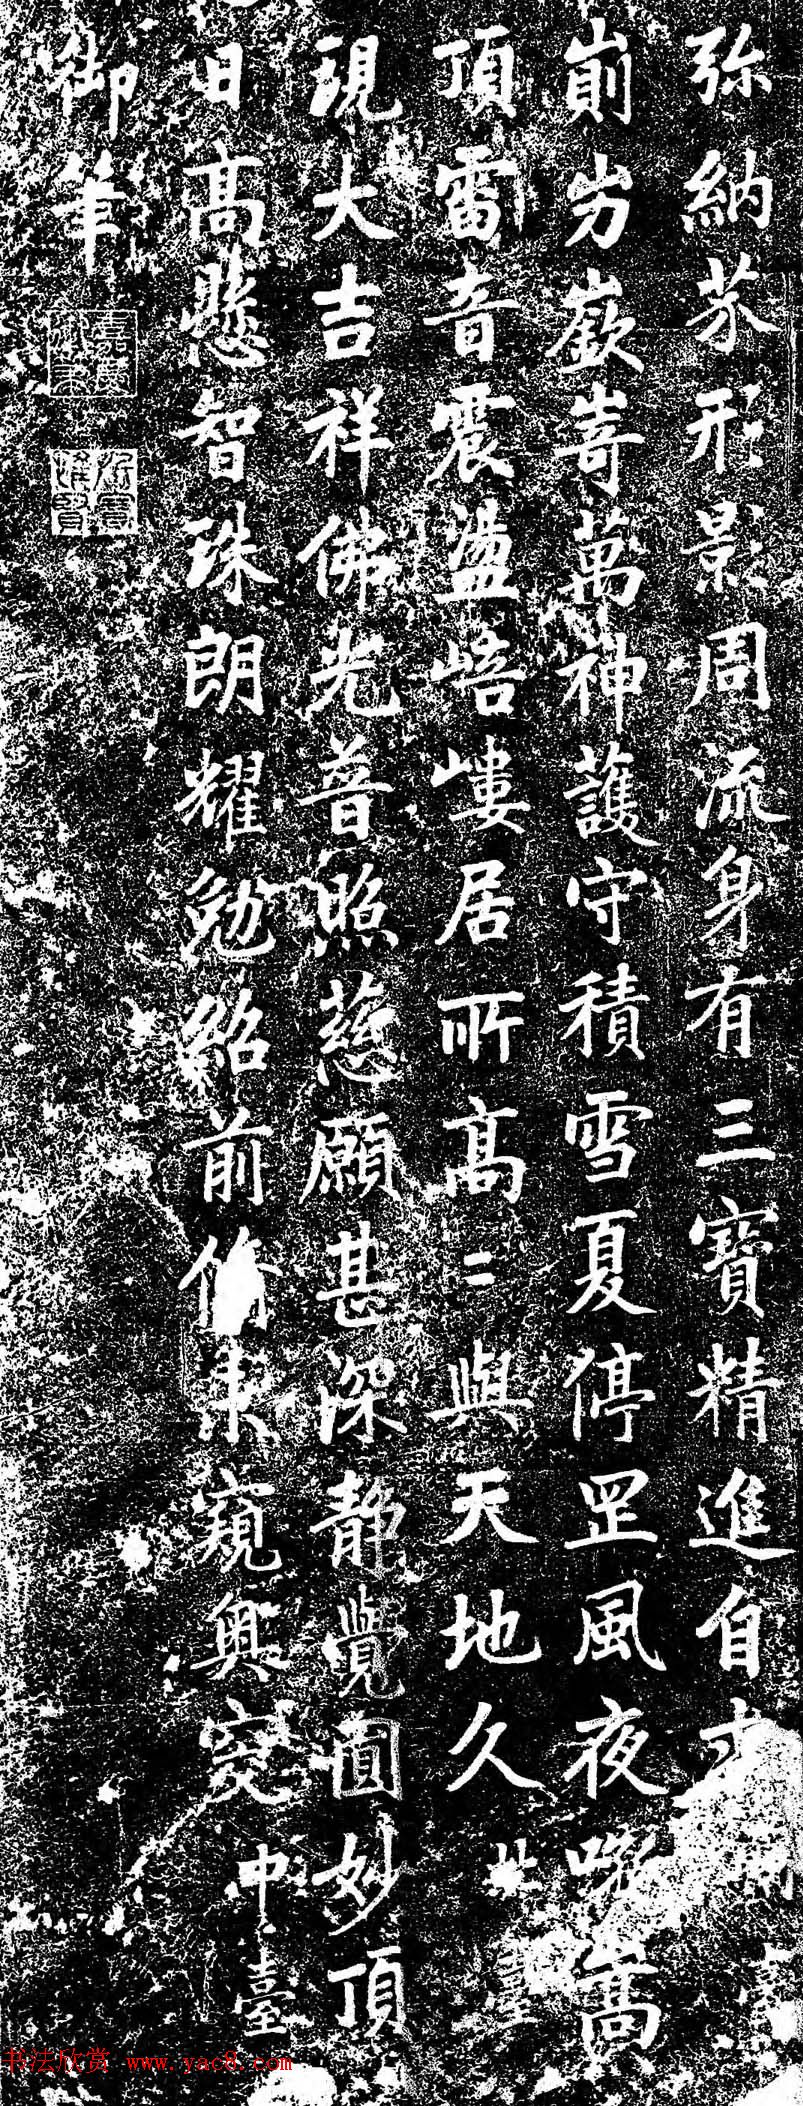 弥納芥形影周流身有三寶精進自
崱屴嶔嵜萬神護守積雪夏停罡風夜嵩
頂雷音震盪㟝嶁居所高〻與天地久 北臺
現大吉祥佛光普照慈願甚深静覺圓妙頂
日高懸智珠朗耀勉紹前脩未窺奥窔 中臺
御筆
所寶惟賢
书法欣赏 www.yac8.com